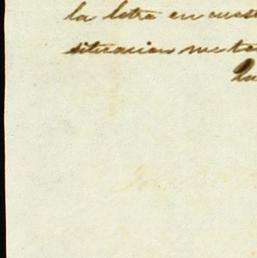 la letra en cuest
situacion me ta